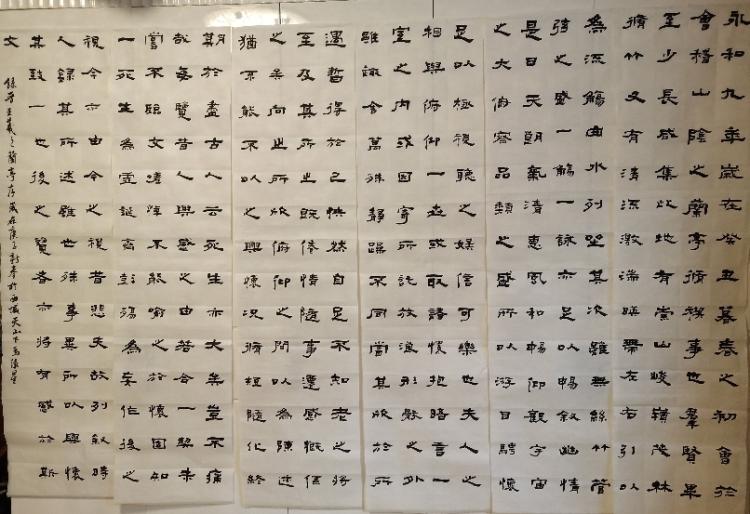 永和九年歲在癸丑暮春之初會於
會稽山陰之蘭亭脩禊事也羣賢畢
至少長咸集此地有崇山峻嶺茂林
脩竹又有清流激湍暎帶左右引以
為流觴曲水列坐其次雖無絲竹管
弦之盛一觴一詠亦足以暢敘幽情
是日天朗氣清惠風和暢仰觀宇宙
之大俯察品類之盛所以游目騁懷
足以極視聽之娛信可樂也夫人之
相與俯仰一世或取諸懷抱晤言一
室之內或因寄所託放浪形骸之外
雖趣舍萬殊靜躁不同當其欣於所
遇暫得於己快然自足不知老之將
至及其所之既倦情隨事遷感慨係
之矣向之所欣俯仰之間以為陳迹
猶不能不以之興懷況脩短隨化終
期於盡古人云死生亦大矣豈不痛
哉每覽昔人興感之由若合一契未
嘗不臨文嗟悼不能喻之於懷固知
一死生為虛誕齊彭殤為妄作後之
視今亦由今之視昔悲夫故列敘時
人錄其所述雖世殊事異所以興懷
其致一也後之覽者亦將有感於斯
文
錄晉王羲之蘭亭序歲在庚子新春於西域天山下